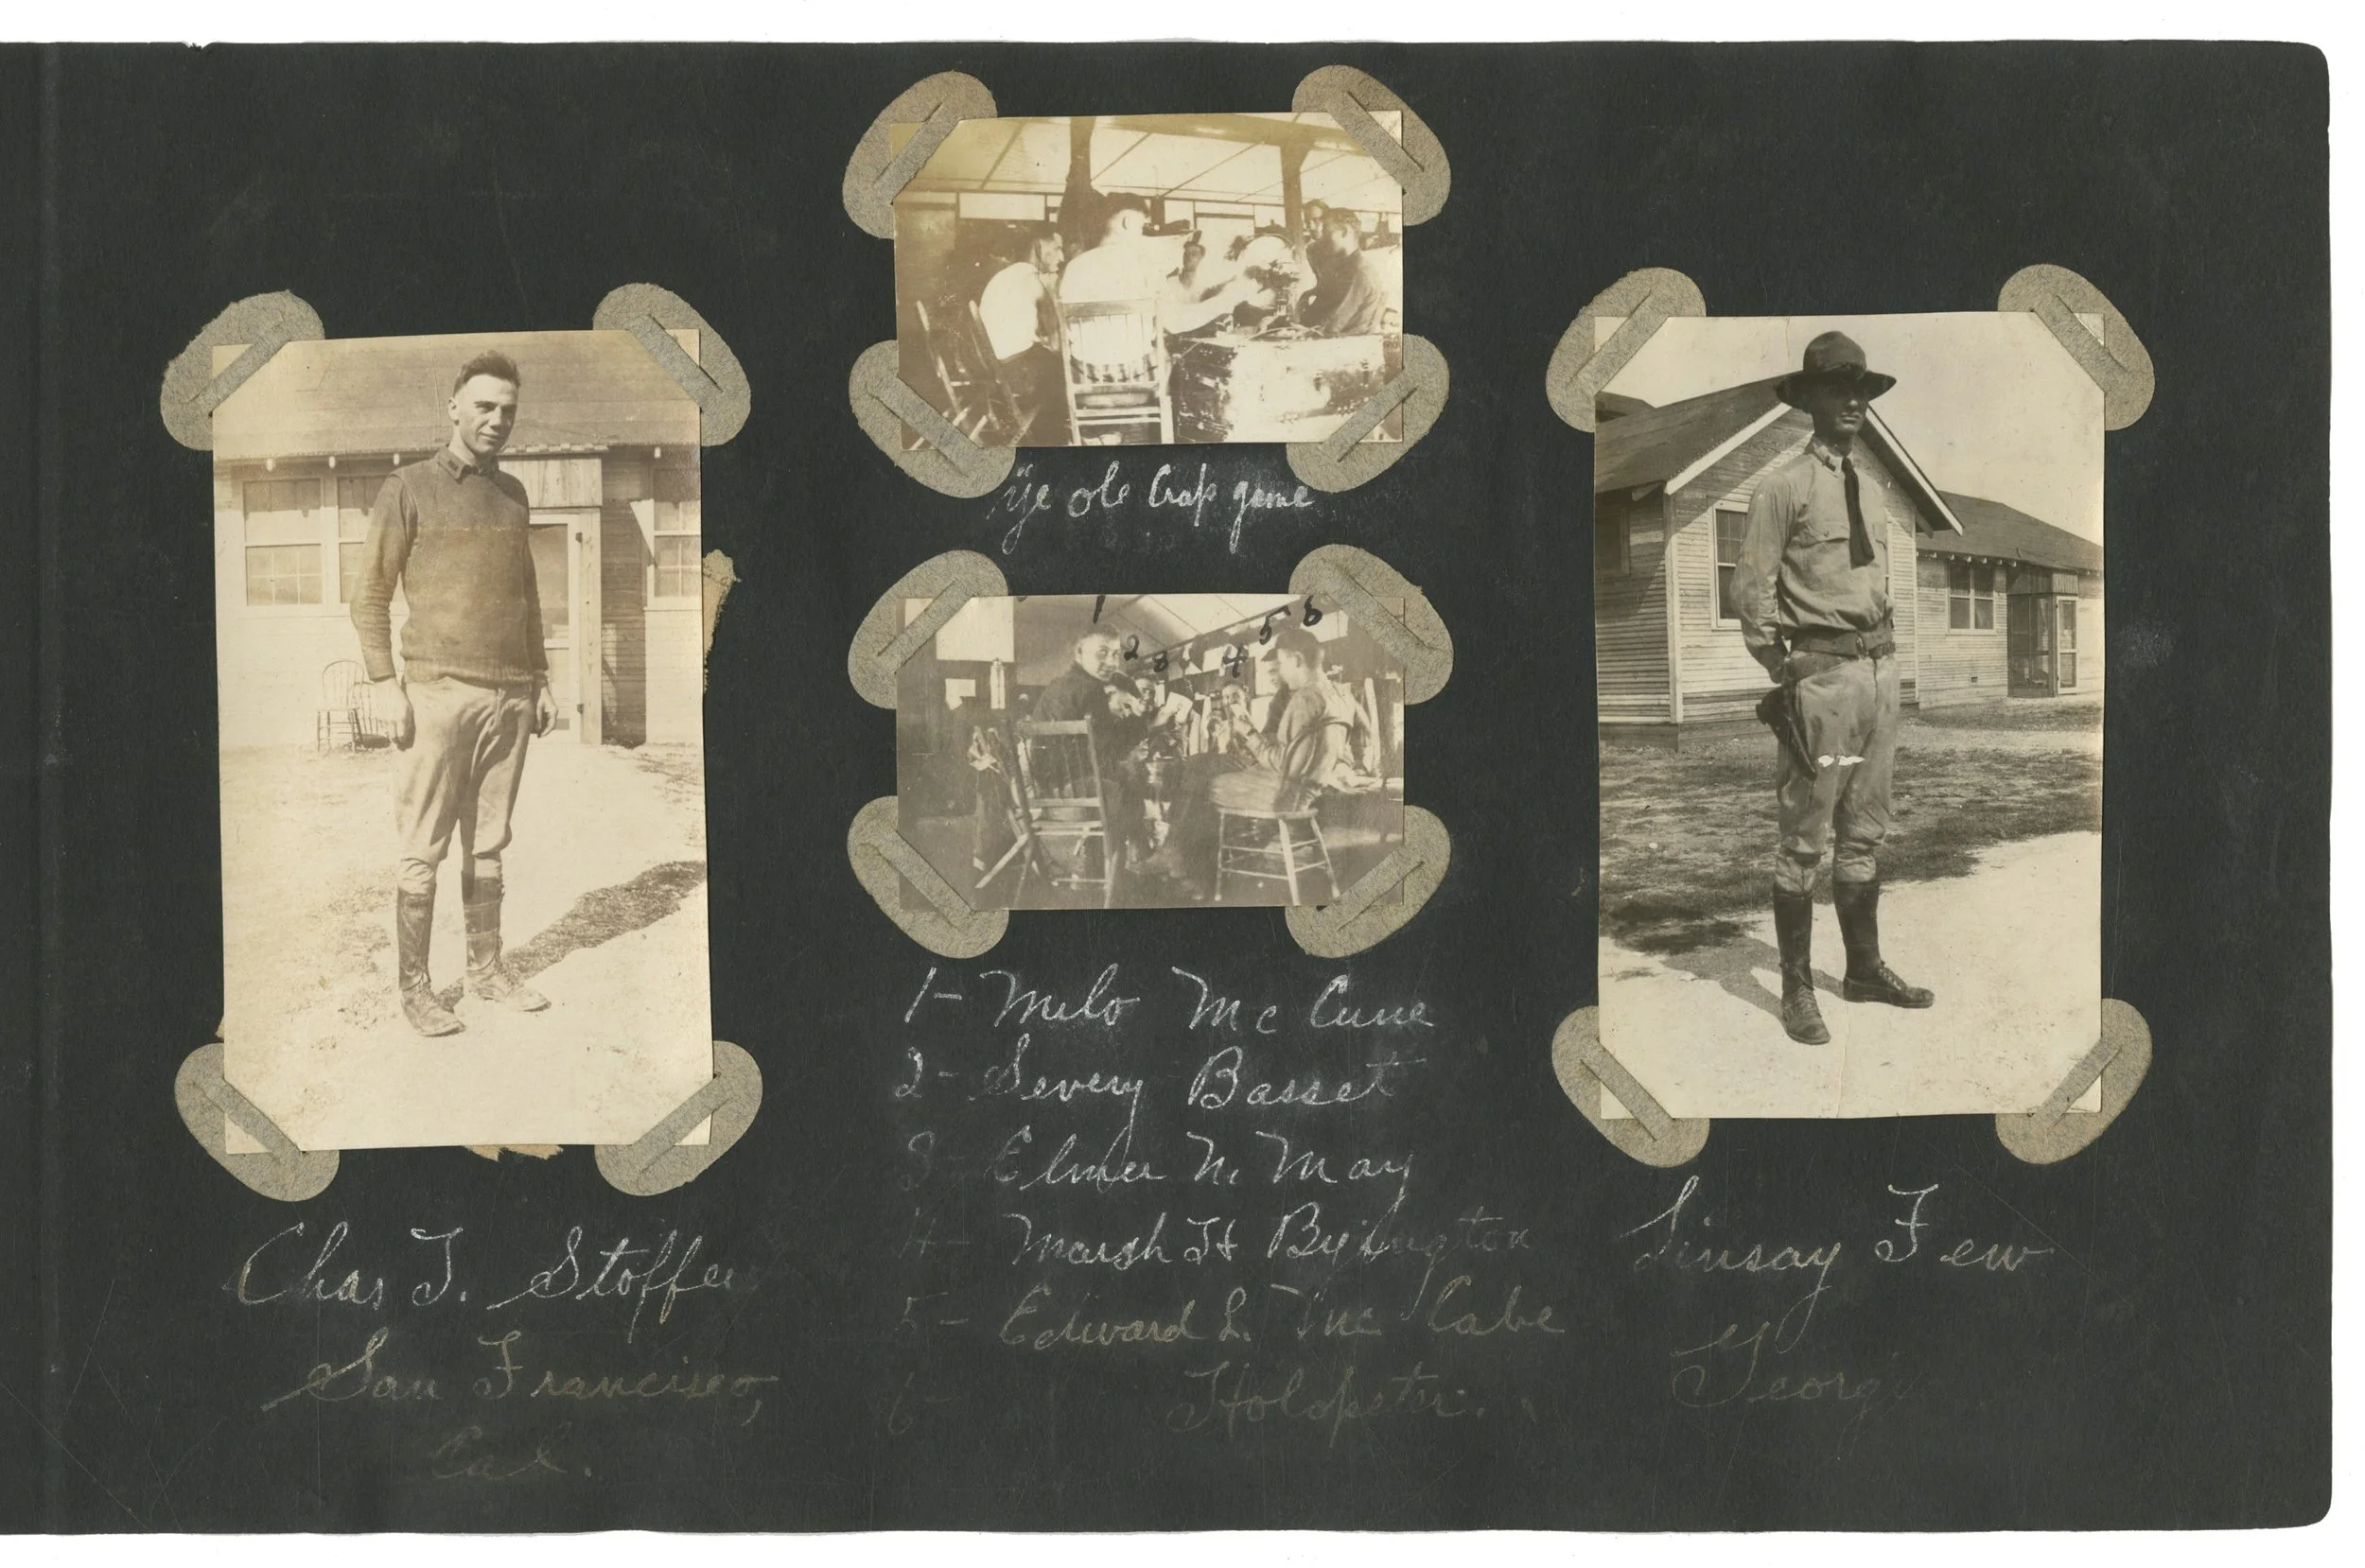 Ye ole Crap game
1 2 3 4 5 6
1- Milo Mc Cune
2- Severy Basset
3- Elmer N. May
4- Marsh H Byington
5- Edward L. Mc Cabe
6- Holdpeter.
Chas T. Stoffer
San Francisco,
Cal.
Linsay Few